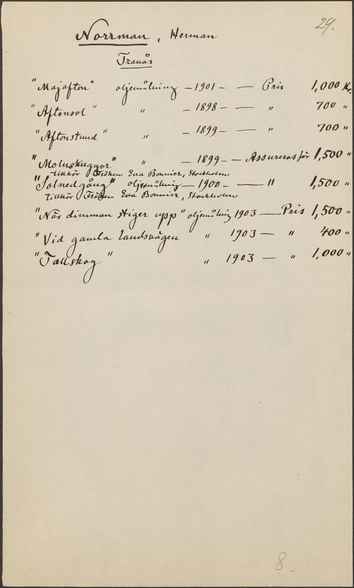 29.
Norrman, Herman
Tranås
"Majafton" oljemålning – 1901 – — Pris 1,000 Kr.
"Aftonsol" " – 1898 – — " 700 "
"Aftonstund" " – 1899 – — " 700 "
"Molnskuggor" " – 1899 – — Assureras för 1,500 "
tillhör Fröken Eva Bonnier, Stockholm
"Solnedgång" oljemålning – 1900 – — " 1,500 "
tillhör Fröken Eva Bonnier, Stockholm
"När dimman stiger upp" oljemålning 1903 — Pris 1,500 "
"Vid gamla landsvägen " 1903 — " 400 "
"Tallskog" " 1903 — " 1,000 "
8.